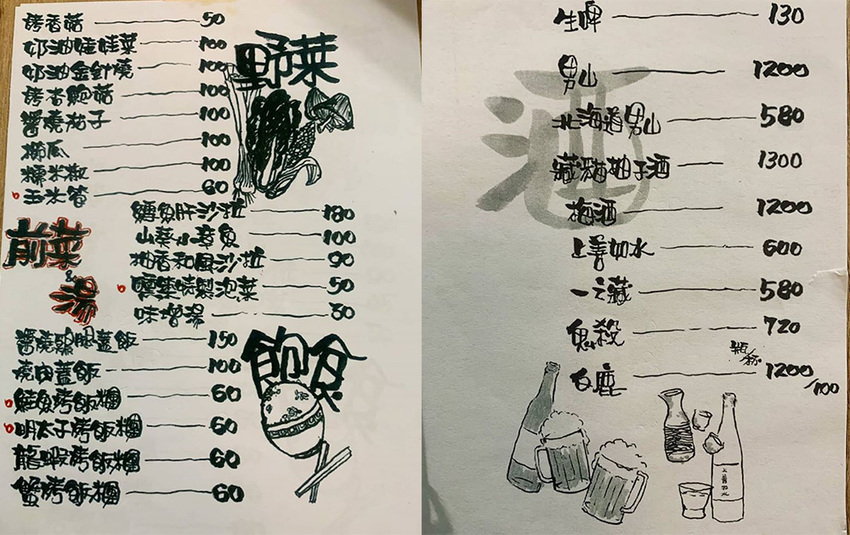 烤香菇 50
奶油娃娃菜 100
奶油金針燒 100
烤杏鮑菇 100
醬燒茄子 100
櫛瓜 100
糯米椒 100
玉米筍 60
野菜
前菜
&
湯
鱈魚肝沙拉 180
山葵小章魚 100
柚香和風沙拉 90
特製泡菜 50
味增湯 30
飽食
醬燒雞腿蓋飯 150
燒肉蓋飯 100
鮭魚烤飯糰 60
明太子烤飯糰 60
龍蝦烤飯糰 60
蟹烤飯糰 60
酒
生啤 130
男山 1200
北海道男山 580
藏貓柚子酒 1300
梅酒 1200
上善如水 600
一之藏 580
鬼殺 720
瓶/杯
白鹿 1200/100
上善如水